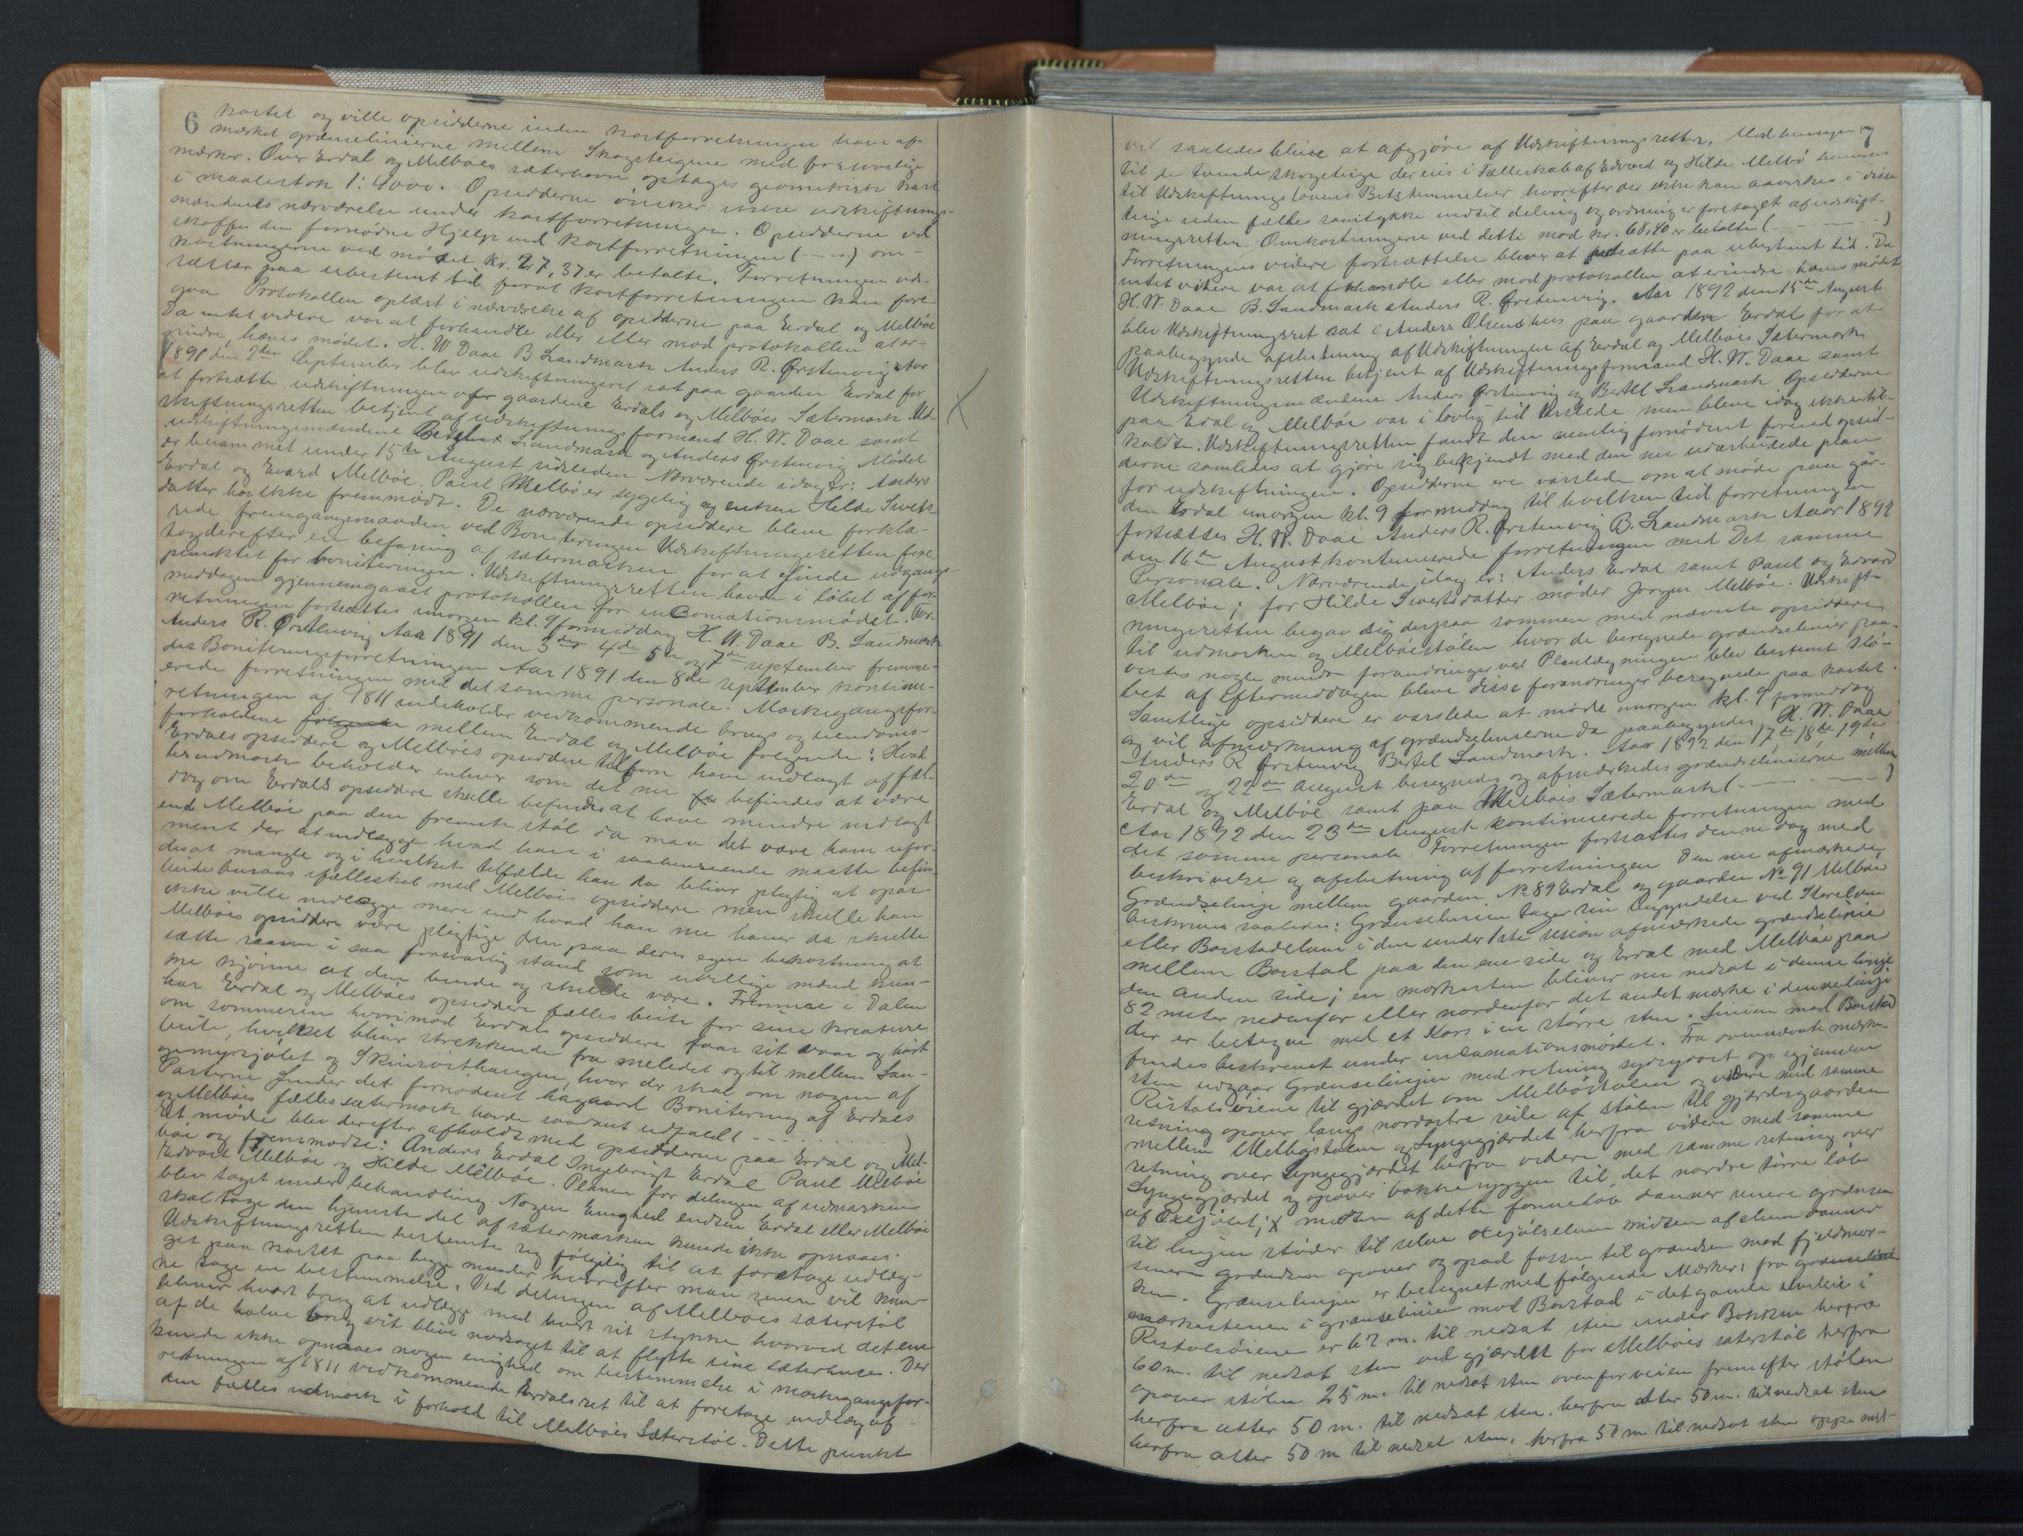 6
kartet og ville opsidderne inden kartforretningen have af-
mærket grænselinierne mellem Skogteigene med forsvarlige
mærker. Over Erdal og Melbøes sæterhavn optages geometrisk kart
i maalestok 1:4000. Opsidderne ønsker udskiftnings-
mændenes nærværelse under kartforretningen. Opsidderne vil
skaffe den fornødne Hjelp ved kartforretningen (- - -) om-
kostningerne ved mødet kr. 27,37 er betalte. Forretningen ud-
sættes paa ubestemt tid forat kartforretningen kan fore
gaa Protokollen oplæst i nærværelse af opsidderne paa Erdal og Melbøe
Da intet videre var at forhandle eller eller mod protokollen at er-
indre, hæves mødet. H. W Daae B Landmark Anders R. Ørstenvig Aar
1891 den 2den September blev udskiftningsret sat paa gaarden Erdal for
at fortsætte udskiftningen over gaardene Erdals og Melbøes Sætermark Ud-
skiftningsretten betjent af udskiftningsformand H. W. Daae samt
udskiftningsmændene Landmark og Anders Ørstenvig Mødet
er berammet under 15de August sidsleden Nærværende idag er: Anders
Erdal og Evard Melbøe. Paul Melbø er sygelig og enken Hilde Siverts
datter har ikke fremmødt. De nærværende opsiddere bleve forkla-
rede fremgangsmaaden ved Boniteringen Udskiftningsretten fore
tog derefter en befaring af sætermarken for at finde udgangs-
punktet for boniteringen. Udskiftningsretten havde i løbet af for-
middagen gjennemgaaet protokollen for incamationsmødet. For-
retningen fortsættes imorgen kl. 9 formiddag H. W Daae B. Landmark
Anders R. Ørstenvig Aar 1891 den 3die 4de 5te og 7de september fremme-
des Boniteringsforretningen Aar 1891 den 8de september kontinu-
erede forretningen med det samme personale. Markegangsfor-
retningen af 1811 indeholder vedkommende brugs og eiendoms-
forholdene mellem Erdal og Melbøe følgende: Hvad
Erdals opsiddere og Melbøes opsiddere tilforn have indlagt af fæl-
les udmark beholder enhver som det nu befindes at være
dog om Erdals opsiddere skulle befindes at have mindre indlagt
end Melbøe paa den fremste støl da maa det være ham ufor-
ment der at indlægge hvad han i saahenseende maatte befin-
des at mangle og i hvilket tilfælde han da bliver pligtig at opar-
beide bufaas i fælleskab med Melbøes opsiddere men skulle han
ikke ville indlægge mere end hvad han nu haver da skulle
Melbøes opsiddere være pligtige den paa deres egen bekostning at
sætte saavn i saa forsvarlig stand som uvillige mænd kun-
ne kjønne at den burde og skulle være. Fremme i Dalen
har Erdal og Melbøes opsiddere fælles beite for sine kreature
om sommeren hvorimod Erdals opsiddere faar sit vaar og høst
beite, hvilket bliver strækkende fra meledet og til mellem San-
gemyrsjølet og Skinrøisthaugen, hvor der skal om nogen af
Parterne finder det fornødent hagaard Bonitering af Erdals
og Melbøes fælles sætermark havde saadant udfald (- - - - - -)
Et møde blev derefter afholdt med opsidderne paa Erdal og Mel-
bøe og fremmødte: Anders Erdal Ingebrigt Erdal Paul Melbøe
Edvard Melbøe og Hilde Melbøe. Planen for delingen af udmarken
blev taget under behandling. Nogen Enighed endten Erdal eller Melbøe
skal tage den hjemste del af sætermarken kunde ikke opnaaes.
Udskiftningsretten bestemte sig følgelig til at foretage udlæg-
get paa kartet paa begge maader hvorefter man senere vil kun-
ne tage en bestemmelse. Ved delingen af Melbøes sæterstøl
bliver hvert brug at udlægge med hvert sit stykke hvorved det ene
af de halve brug vil blive nødsaget til at flytte sine sæterhuse. Der
kunde ikke opnaaes nogen enighed om bestemmelse i markegangsfor-
retningen af 1811 vedkommende Erdals ret til at foretage indlæg af
den fælles udmark i forhold til Melbøes Sæterstøl. Dette punkt
7
vil saaledes blive at afgjøre af Udskiftningsretten. Med hensyn
til de tvende skogteige der eies i Fælleskab af Edvard og Hilde Melbø henvises
til Udskiftningslovens Bestemmelser hvorefter der ikke kan aavirkes i disse
teige uden fælles samtykke indtil deling og ordning er foretaget af udskift-
ningsretten. Omkostningerne ved dette mød kr. 68,40 er betalte (- - -)
Forretningens videre fortsættelse bliver at udsætte paa ubestemt tid. Da
intet videre var at forhandle eller mod protokollen at erindre hæves mødet
H. W. Daae B. Landmark Anders R. Ørstenvig. Aar 1892 den 15de August
blev Udskiftningsret sat i Anders Olsens hus paa gaarden Erdal for at
paabegynde afslutning af Udskiftningen af Erdal og Melbøes Sætermark
Udskiftningsretten betjent af Udskiftningsformand H. W. Daae samt
Udskiftningsmændene Anders Ørstenvig og Bertel Landmark Opsidderne
paa Erdal og Melbøe var i lovlig tid varslede men bleve idag ikke til-
kaldt. Udskiftningsretten fandt den nemlig fornødent forend opsid-
derne samledes at gjøre sig bekjendt med den nu udarbeidede plan
for udskiftningen. Opsidderne ere varslede om at møde paa gaar-
den Erdal imorgen kl. 9 formiddag til hvilken tid forretningen
fortsættes H. W. Daae Anders R. Ørstenvig B. Landmark Aaar 1892
den 16de August kontinuerede forretningen med Det samme
Personale. Nærværende idag er: Anders Erdal samt Paul og Edvard
Melbøe; for Hilde Sivertsdatter møder Jørgen Melbøe. Udskift-
ningsretten begav sig derpaa sammen med nævnte opsiddere
til udmarken og Melbøestølen hvor de beregnede grændselinier paa-
vistes nogle mindre forandringer ved Planlægningen blev bestemt I lø-
bet af Eftermiddagen bleve disse forandringer beregnede paa kartet.
Samtlige opsiddere er varslede at møde imorgen kl. 9 formiddag
og vil afmærkning af grændselinierne da paabegyndes. H. W. Daae
Anders R Ørstenvig Bertel Landmark. Aar 1892 den 17de 18de 19de
20de og 22de August beregnedes og afmærkedes grændselinierne mellem
Erdal og Melbøe samt paa Melbøes Sætermark (- - - -)
Aar 1892 den 23de August kontinuerede forretningen med
det samme personale. Forretningen fortsattes denne dag med
beskrivelse og afslutning af forretningen Den nu afmærkede
Grændselinje mellem gaarden No 89 Erdal og gaarden No 91 Melbøe
beskrives saaledes: Grænselinien tager sin begyndelse ved Storelven
eller Barstadelven i den under 1ste sesion afmærkede grændselinie
mellem Barstad paa den ene side og Erdal med Melbøe paa
den anden side; en mærkesten bliver nu nedsat i denne linje
82 meter nedenfor eller nordenfor det andet mærke i denne linje
der er betegne med et Kors i en større sten. Linien mod Barstad
findes beskrevet under incamationsmødet. Fra ovennævnte mærke-
sten udgaar Grænselinjen med retning sydsydost op igjennem
Ristolsøiene til gjærdet om Melbøstølen og videre med samme
retning opover langs nordøstre side af stølen til gjærdesgaarden
mellem Melbøstølen og Lyngegjærdet herfra videre med samme
retning over Lyngegjærdet herfra videre med samme retning over
Lyngegjærdet og opover bakkeryggen til det nordre tørre løb
af Oxejølet; x midten af dette forne løb danner senere grænsen
til linjen støder til selve Oxejølselven midten af elven danner
senere grændsen opover og opad fossen til grændsen mod fjeldmar-
ken. Grænselinjen er betegnet med følgende Mærker: fra grænselinien
mærkestenen i grænselinien mod Barstad i det gamle elveleie i
Ristolsøiene er 67 m. til nedsat sten under Bakken herfra
60 m. til nedsat sten ved gjærdet for Melbøes sæterstøl herfra
opover stølen 25 m. til nedsat sten ovenfor veien frem efter stølen
herfra atter 50 m. til nedsat sten, herfra atter 50 m. til nedsat sten
herfra atter 50 m til nedsat sten, herfra 57 m til nedsat sten oppe mel-